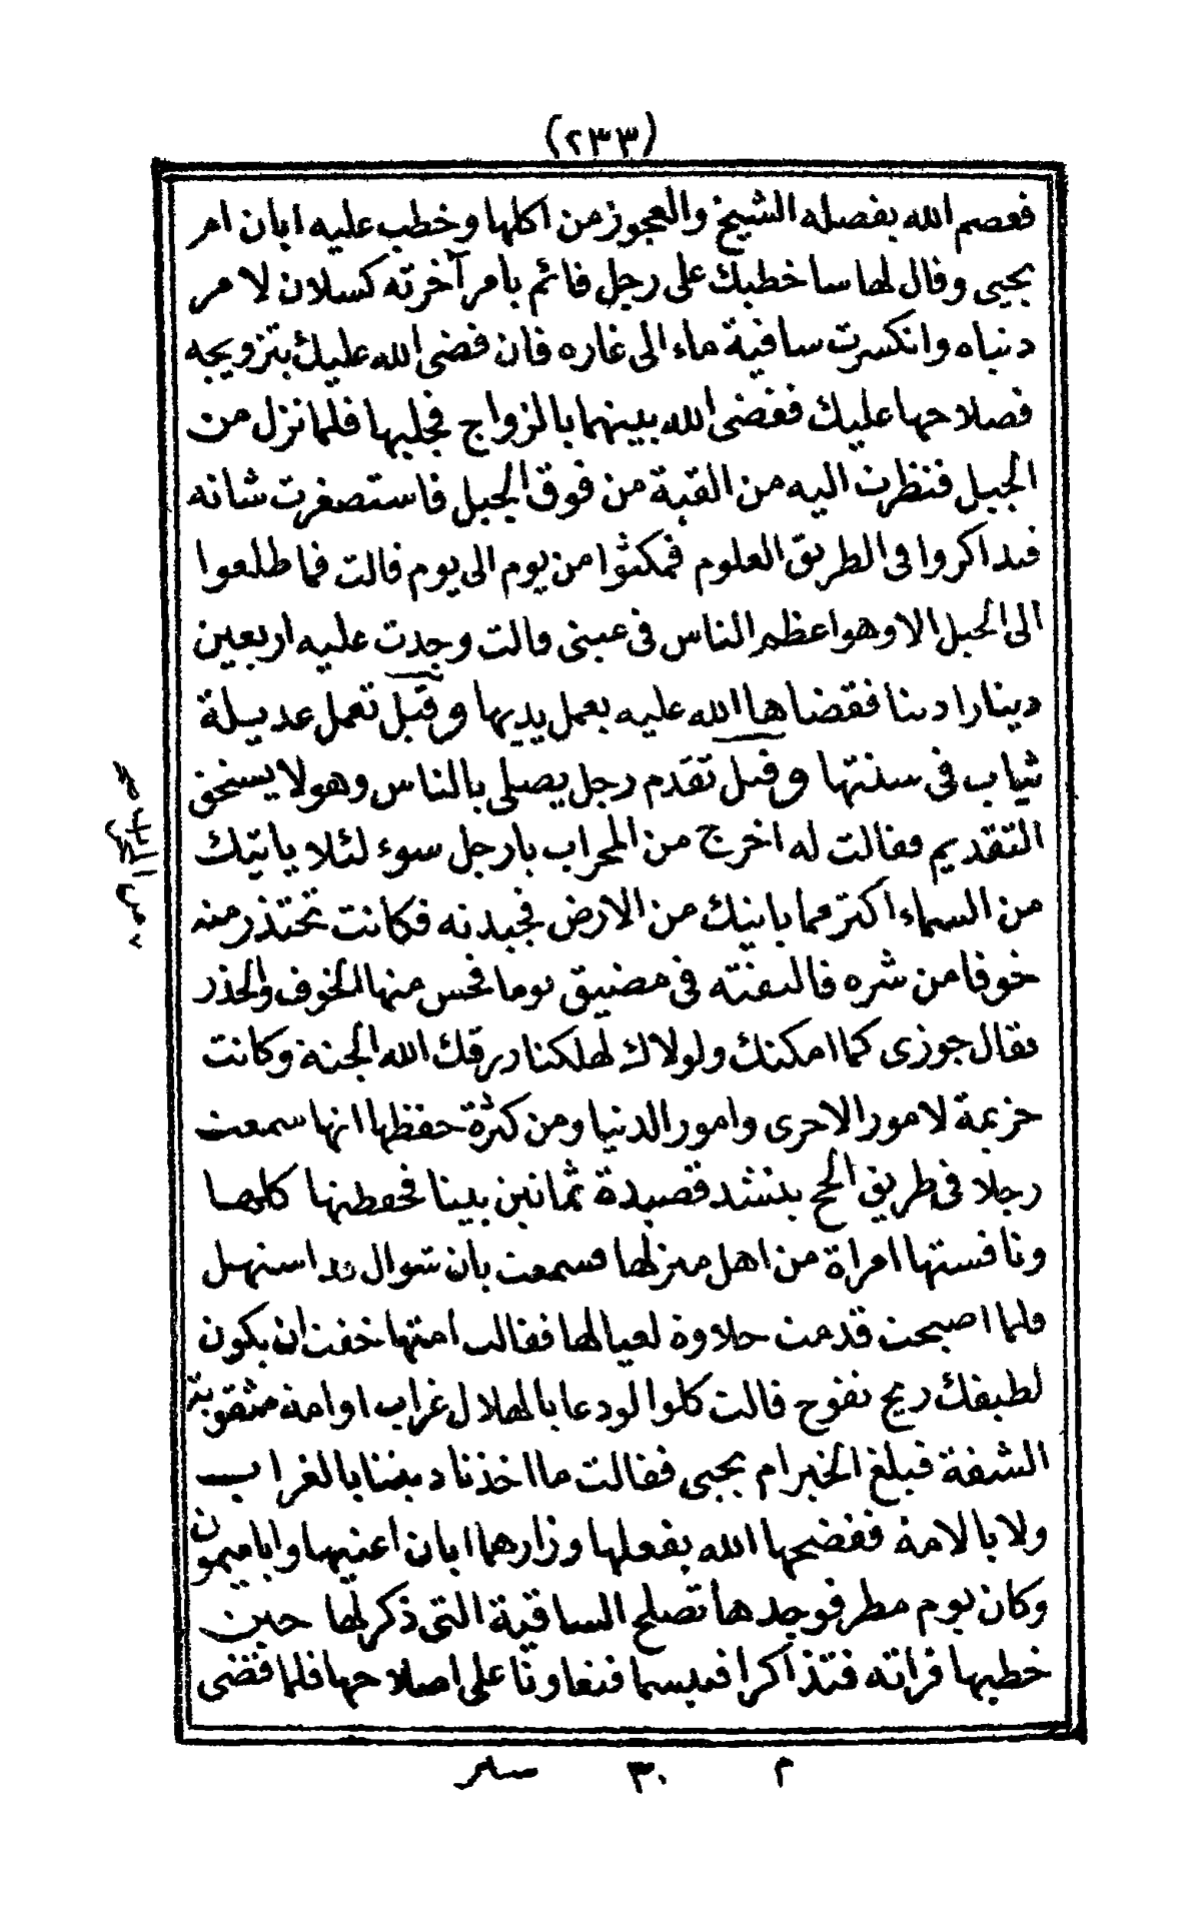 (٢٣٣)
فعصم الله بفضله الشيخ والعجوز من اكلها وخطب عليه ابان ام
يحيى وقال لها ساخطبك على رجل قائم بامر آخرته كسلان لامر
دنياه وانكسرت ساقية ماء الى غاره فان قضى الله عليك بتزويجه
فصلاحها عليك فقضى الله بينهما بالزواج فجلبها فلما نزل من
الجبل فنظرت اليه من القبة من فوق الجبل فاستصغرت شانه
فتذاكروا فى الطريق العلوم فمكثوا من يوم الى يوم قالت فما طلعوا
الى الجبل الا وهو اعظم الناس فى عينى قالت وجدت عليه اربعين
دينارا دينا فقضاها الله عليه بعمل يديها وقيل تعمل عديلة
ثياب فى سنتها وقيل تقدم رجل يصلى بالناس وهو لا يستحق
التقديم فقالت له اخرج من المحراب يارجل سوء لئلا ياتيك
من السماء اكثر مما ياتيك من الارض فجبدته فكانت تحتذر منه
خوفا من شره فالتقته فى مضيق يوما فحس منها الخوف والحذر
فقال جوزى كما امكنك ولولاك لهلكنا رزقك الله الجنة وكانت
حزيمة لامور الاخرى وامور الدنيا ومن كثرة حفظها انها سمعت
رجلا فى طريق الحج ينشد قصيدة ثمانين بيتا فحفظتها كلها
ونافستها امراة من اهل منزلها فسمعت بان شوال قد استهل
فلما اصبحت قدمت حلاوة لعيالها فقالت امتها خفت ان يكون
لطبيخك ريح تفوح قالت كلوا لو دعا بالهلال غراب او امة مثقوبة
الشفة فبلغ الخبر ام يحيى فقالت ما اخذنا ديننا بالغراب
ولا بالامة ففضحها الله بفعلها وزارهما ابان اعنيها وابا ميمون
وكان يوم مطر فوجدها تصلح الساقية التى ذكر لها حين
خطبها فراته فتذاكرا فتبسما فتعاونا على اصلاحها فلما قضى
م ٣٠ سير